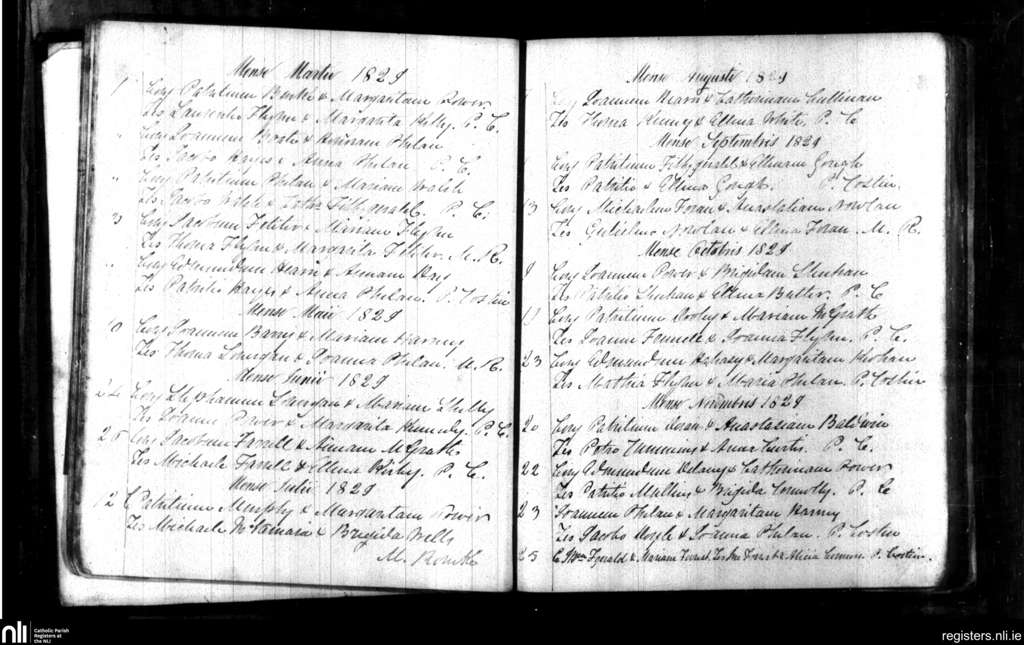 Mense Martii 1829
1 Conj Patritium Burke & Margaritam Power
Tes Laurentio Flynn & Margarita Kelly. P. C.
" Conj Joannem & Phelan
Tes Jacobo Hayes & Anna Phelan P. C.
" Conj Patritium Phelan & Mariam Walsh
Tes Jacobo Walsh & Fitzgerald. P. C.
3 Conj Jacobum & Mariam Flynn
Tes Thoma Flynn & Margarita M. R.
" Conj Edmundum Hearn & Annam
Tes Patritio Hayes & Anna Phelan. P. Costin
Mense Maii 1829
10 Conj Joannem Barry & Mariam Harney
Tes Thoma Lonergan & Joanna Phelan. M. R.
Mense Junii 1829
24 Conj Stephanum Lonergan & Mariam Shelly
Tes Joanne Power & Margarita Kennedy. P. C.
26 Conj Jacobum Farrell & Annam McGrath
Tes Michaele Farrell & Ellena P. C.
Mense Julii 1829
12 C Patritium Murphy & Margaritam Power
Tes Michaele McNamara & Brigida Wells
M.
Mense Augusti 1829
Conj Joannem Hearn & Catherinam Cullinan
Tes Thoma Kenny & Ellena White. P. C
Mense Septembris 1829
Conj Patritium Fitzgerald & Ellenam Gough
Tes Patritio & Ellena Gough. P. Costin.
13 Conj Michaelem Foran & Anastatiam Nowlan
Tes Gulielmo Nowlan & Ellena Foran. M. R.
Mense Octobris 1829
Conj Joannem Power & Brigidam Sheehan
Tes Patritio Sheehan & Ellena Butler. P. C
Conj Patritium Dooley & Mariam McGrath
Tes Joanne & Joanna Flynn. P. C.
23 Conj Edmundum & Margaritam
Tes Matthia Flynn & Maria Phelan. P. Costin
Mense Novembris 1829
20 Conj Patritium & Anastasiam Baldwin
Tes Petro Cummins & Anna Curtis. P. C.
22 Conj Edmundum Delany & Catherinam Power
Tes Patritio Mullins & Brigida Connolly. P. C
23 Joannem Phelan & Margaritam Harney
Tes Jacobo & Joanna Phelan. P. Costin
25 C Wm & Mariam Forrest. Tes & Alicia P. Costin.
nli
Catholic Parish
Registers at
the NLI
registers.nli.ie